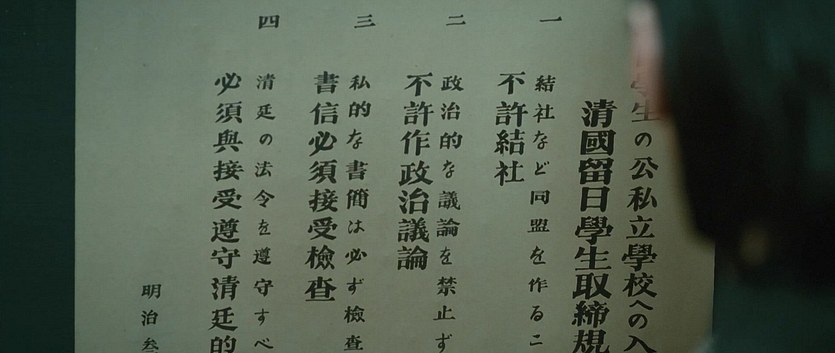 學生の公私立學校への入
清國留日學生取締規
一
結社など同盟を作るこ
不許結社
二
政治的な議論を禁止ず
不許作政治議論
三
私的な書簡は必ず檢查
書信必須接受檢查
四
清廷の法令を遵守すべ
必須與接受遵守清廷的
明治叁